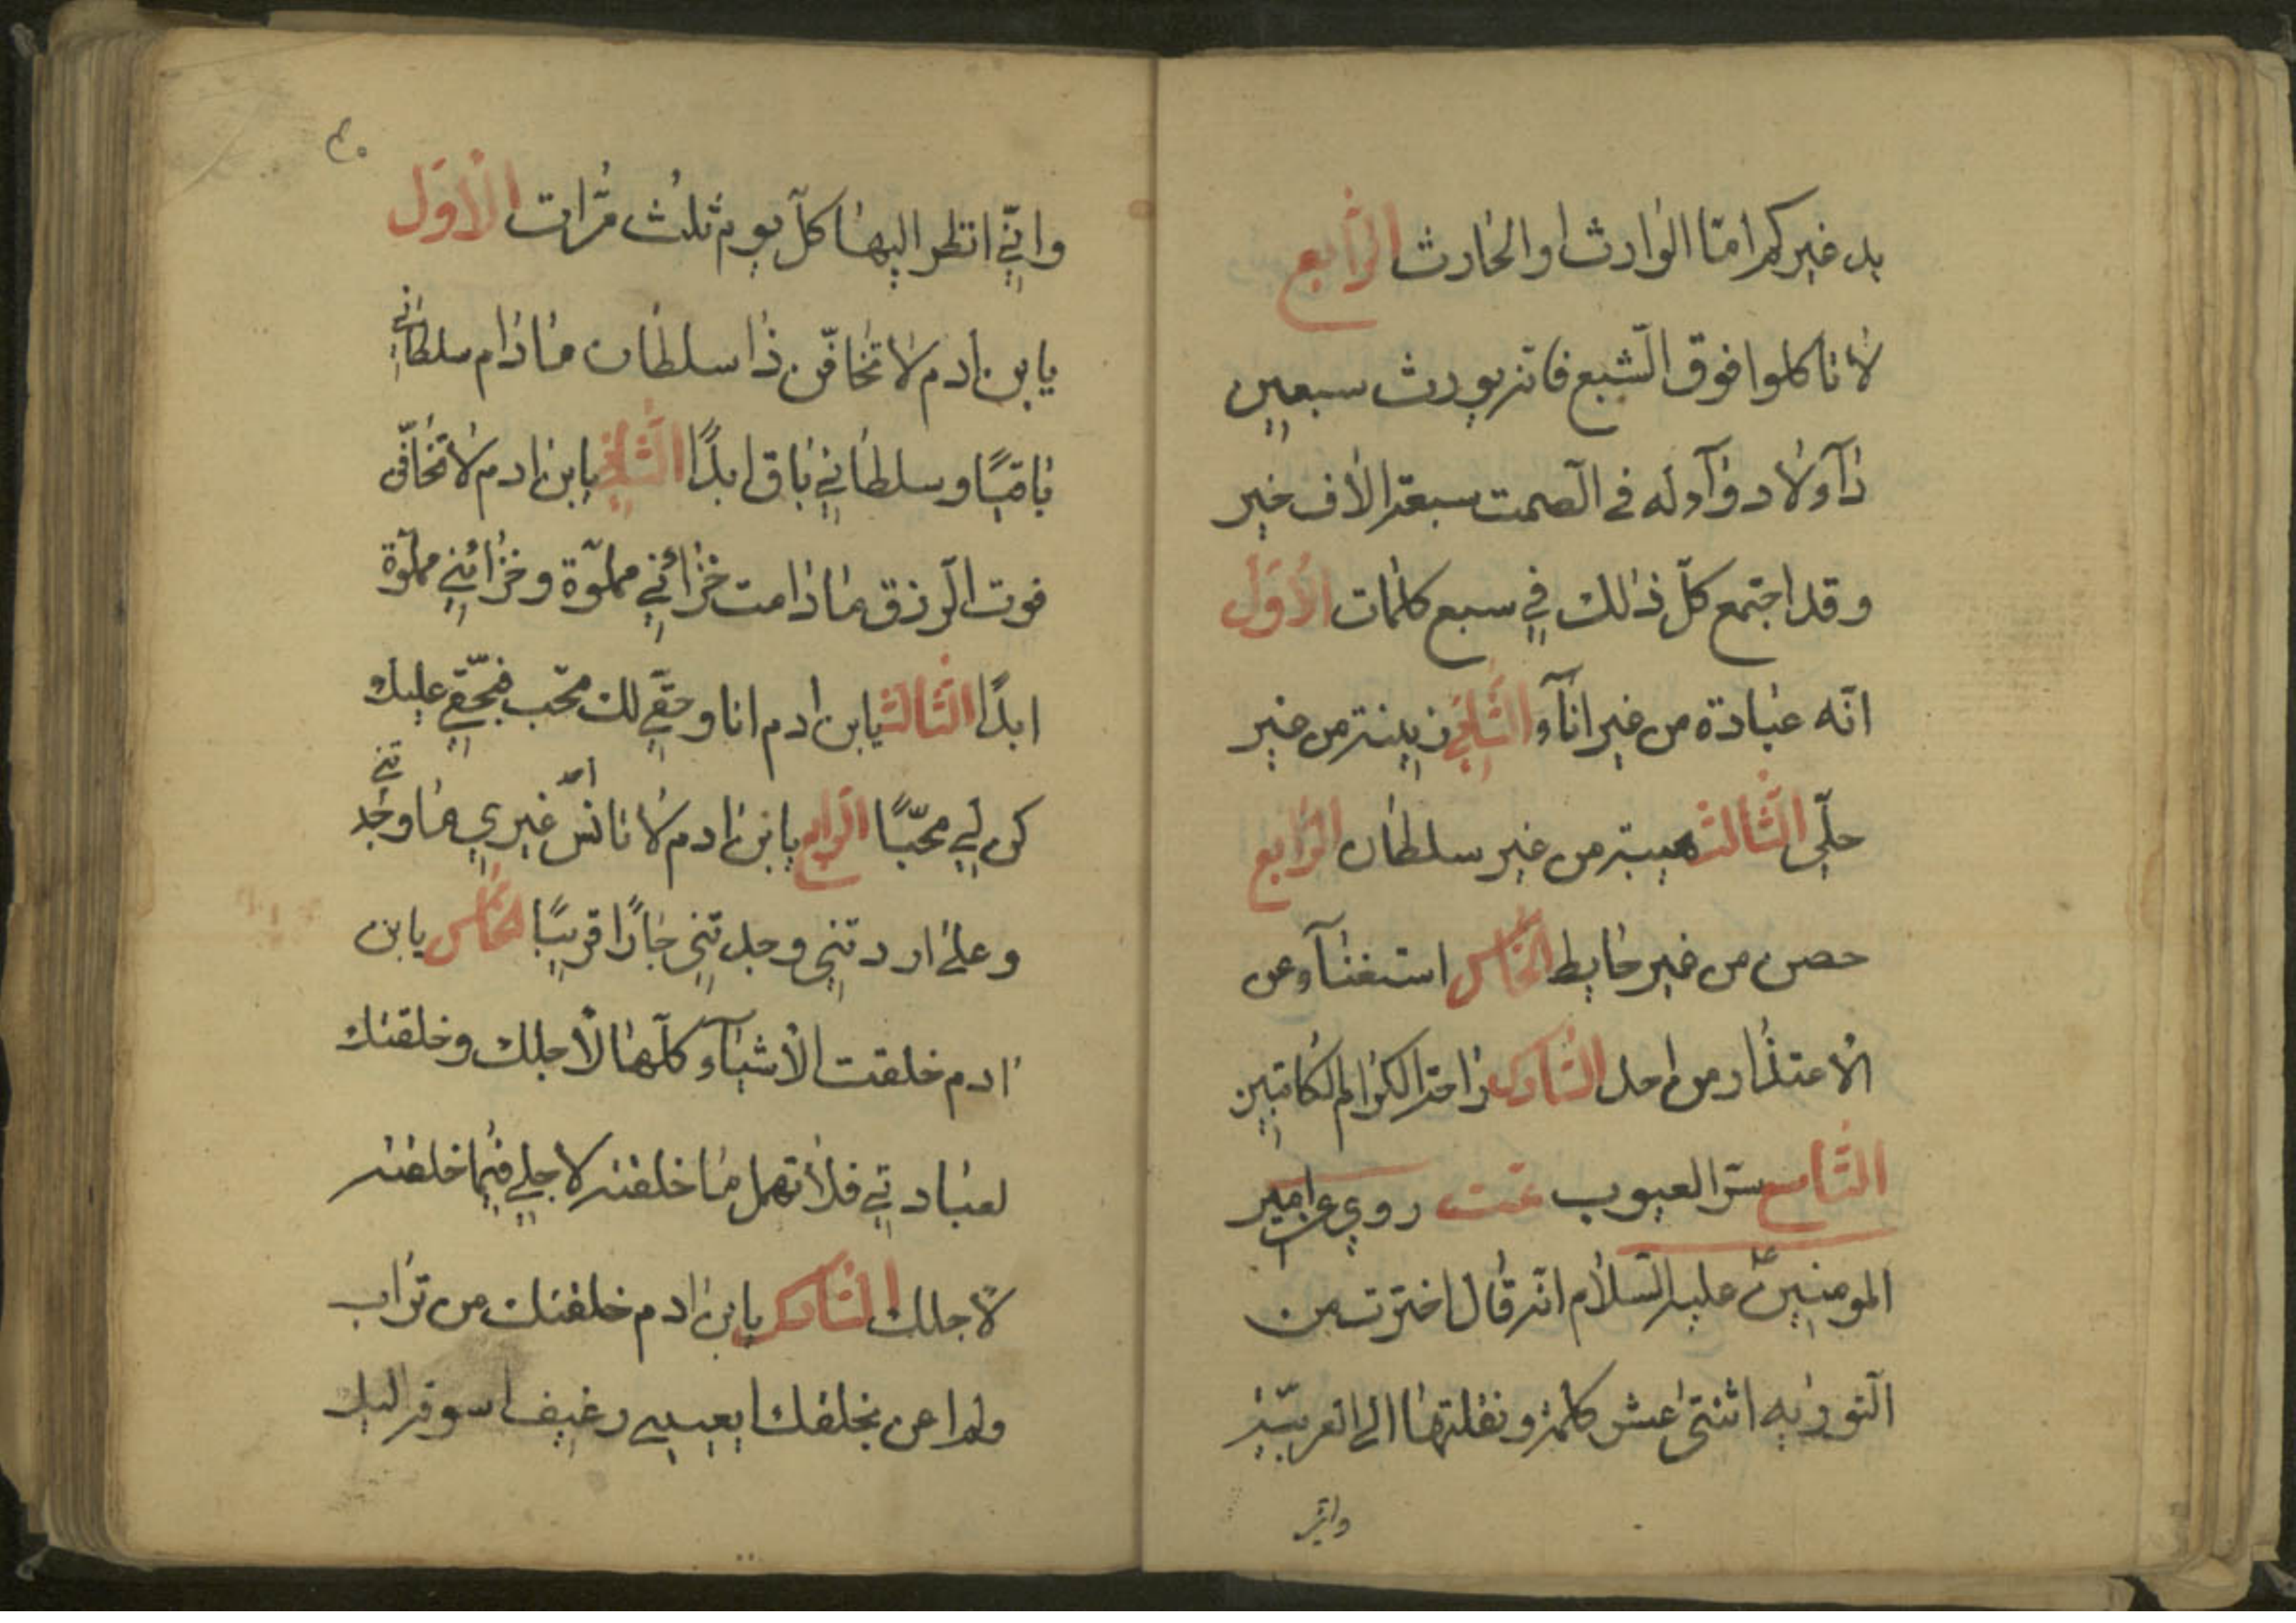 بيد غيركم امّا الوارث او الحارث الرّابع
لا تاكلوا فوق الشّبع فانّه يورث سبعين
دآء ولا دوآء له في الصّمت سبعة الاف خير
و قد اجتمع كلّ ذلك في سبع كلمات الأوّل
انّه عبادة من غير انآء الثّاني زينة من غير
حلّي الثّالث هيبة من غير سلطان الرّابع
حصن من غير حايط الخامس استغنآء عن
الاعتذار من احد السّادس راحة الكرام الكاتبين
السّابع ستر العيوب تمت روي عن امير
المومنين عليه السّلام انّه قال اخترت من
التّورية اثنتى عشر كلمة و نقلتها الى العربيّة
وانّي
٤٠
وانّي انظر اليها كلّ يوم ثلث مرّات الأوّل
يابن ادم لا تخافنّ ذا سلطان ما دام سلطاني
باقيًا و سلطاني باق ابدًا الثّاني يابن ادم لا تخافنّ
فوت الرّزق ما دامت خزائني مملوّة و خزائني مملوّة
ابدًا الثّالث يابن ادم انا و حقّي لك محب فبحقّي عليك
كن لي محبّا الرّابع يابن ادم لا تانس غيري ما وجدتني
و على اردتني وجدتني جارًا قريبًا الخامس يابن
ادم خلقت الأشيآء كلّها لأجلك و خلقتك
لعبادتي فلا تهمل ما خلقته لاجلي فيما خلقته
لاجلك السّادس يابن ادم خلقتك من تراب
ولم اعى بخلقك ايعييني رغيف اسوقه اليك